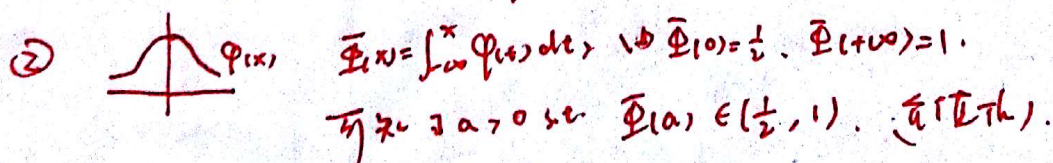 ② φ(x) Φ(x)=∫_{-∞}^{x} φ(t)dt, 由Φ(0)=1/2. Φ(+∞)=1.
可知 ∃ a>0 s.t. Φ(a)∈(1/2, 1).